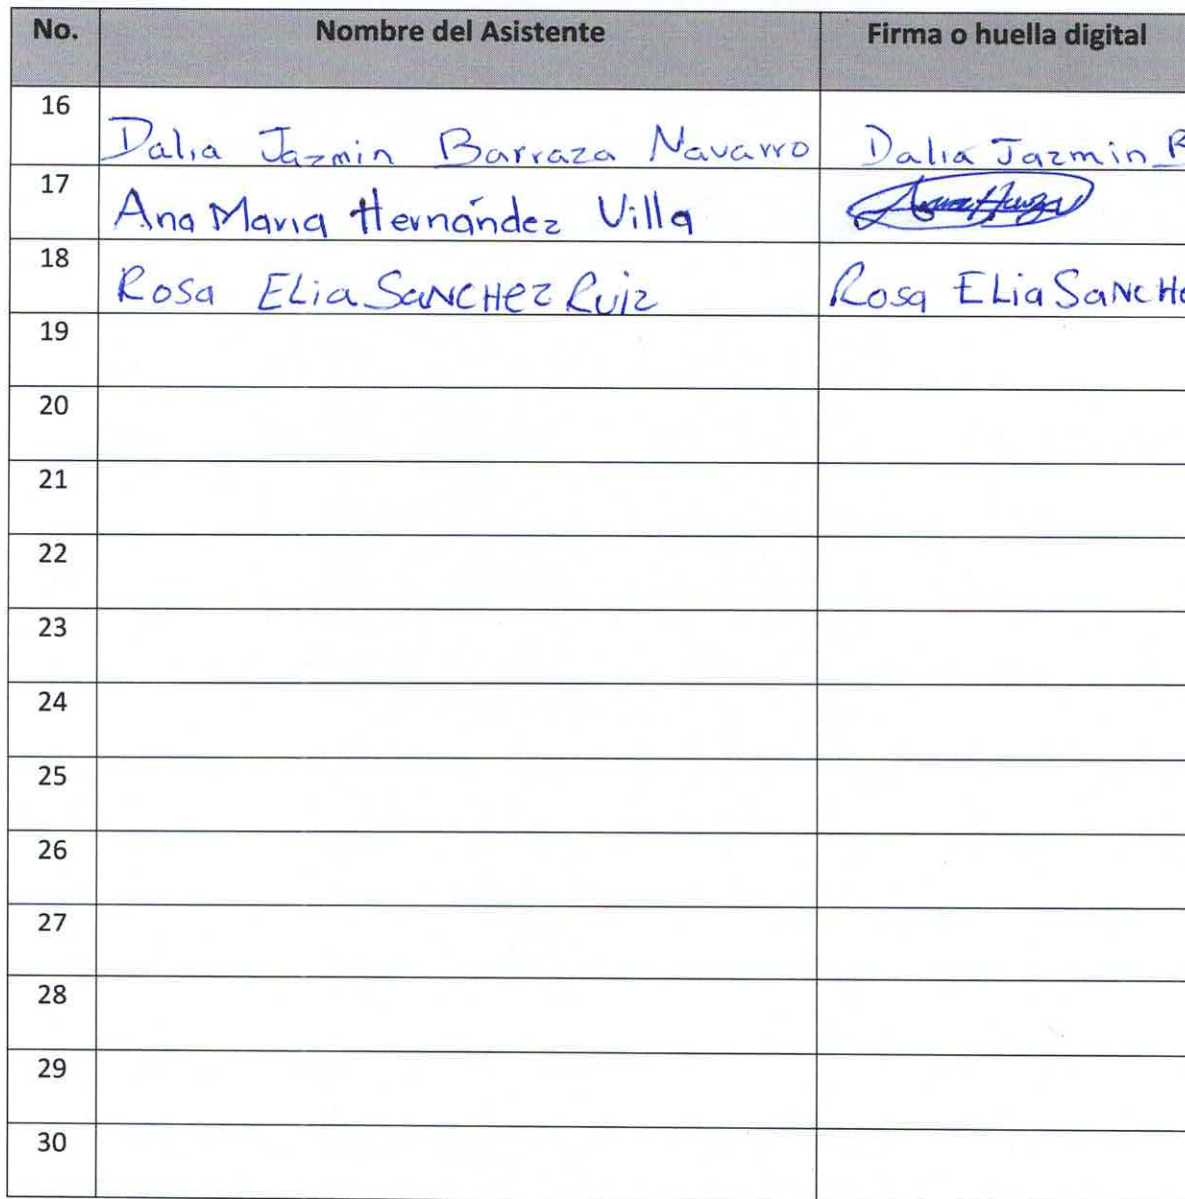 No. Nombre del Asistente Firma o huella digital
16 Dalia Jazmin Barraza Navarro Dalia Jazmin B
17 Ana Maria Hernández Villa
18 Rosa ELia SANCHEZ Ruiz Rosa ELia SANCH
19
20
21
22
23
24
25
26
27
28
29
30